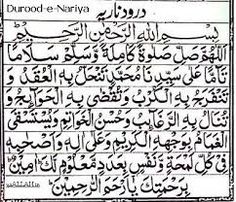 Durood-e-Nariya
درود ناریہ
بِسْمِ اللهِ الرَّحْمٰنِ الرَّحِيْمِ
اَللّٰهُمَّ صَلِّ صَلٰوةً كَامِلَةً وَّسَلِّمْ سَلَامًا
تَامًّا عَلٰى سَيِّدِنَا مُحَمَّدٍ تَنْحَلُّ بِهِ الْعُقَدُ وَ
تَنْفَرِجُ بِهِ الْكُرَبُ وَتُقْضٰى بِهِ الْحَوَآئِجُ وَ
تُنَالُ بِهِ الرَّغَآئِبُ وَحُسْنُ الْخَوَاتِيْمِ وَيُسْتَسْقَى
الْغَمَامُ بِوَجْهِهِ الْكَرِيْمِ وَعَلٰى اٰلِهٖ وَاَصْحَابِهٖ
فِيْ كُلِّ لَمْحَةٍ وَّنَفَسٍ بِعَدَدِ كُلِّ مَعْلُوْمٍ لَّكَ اٰمِيْنَ
بِرَحْمَتِكَ يَآ اَرْحَمَ الرَّاحِمِيْنَ